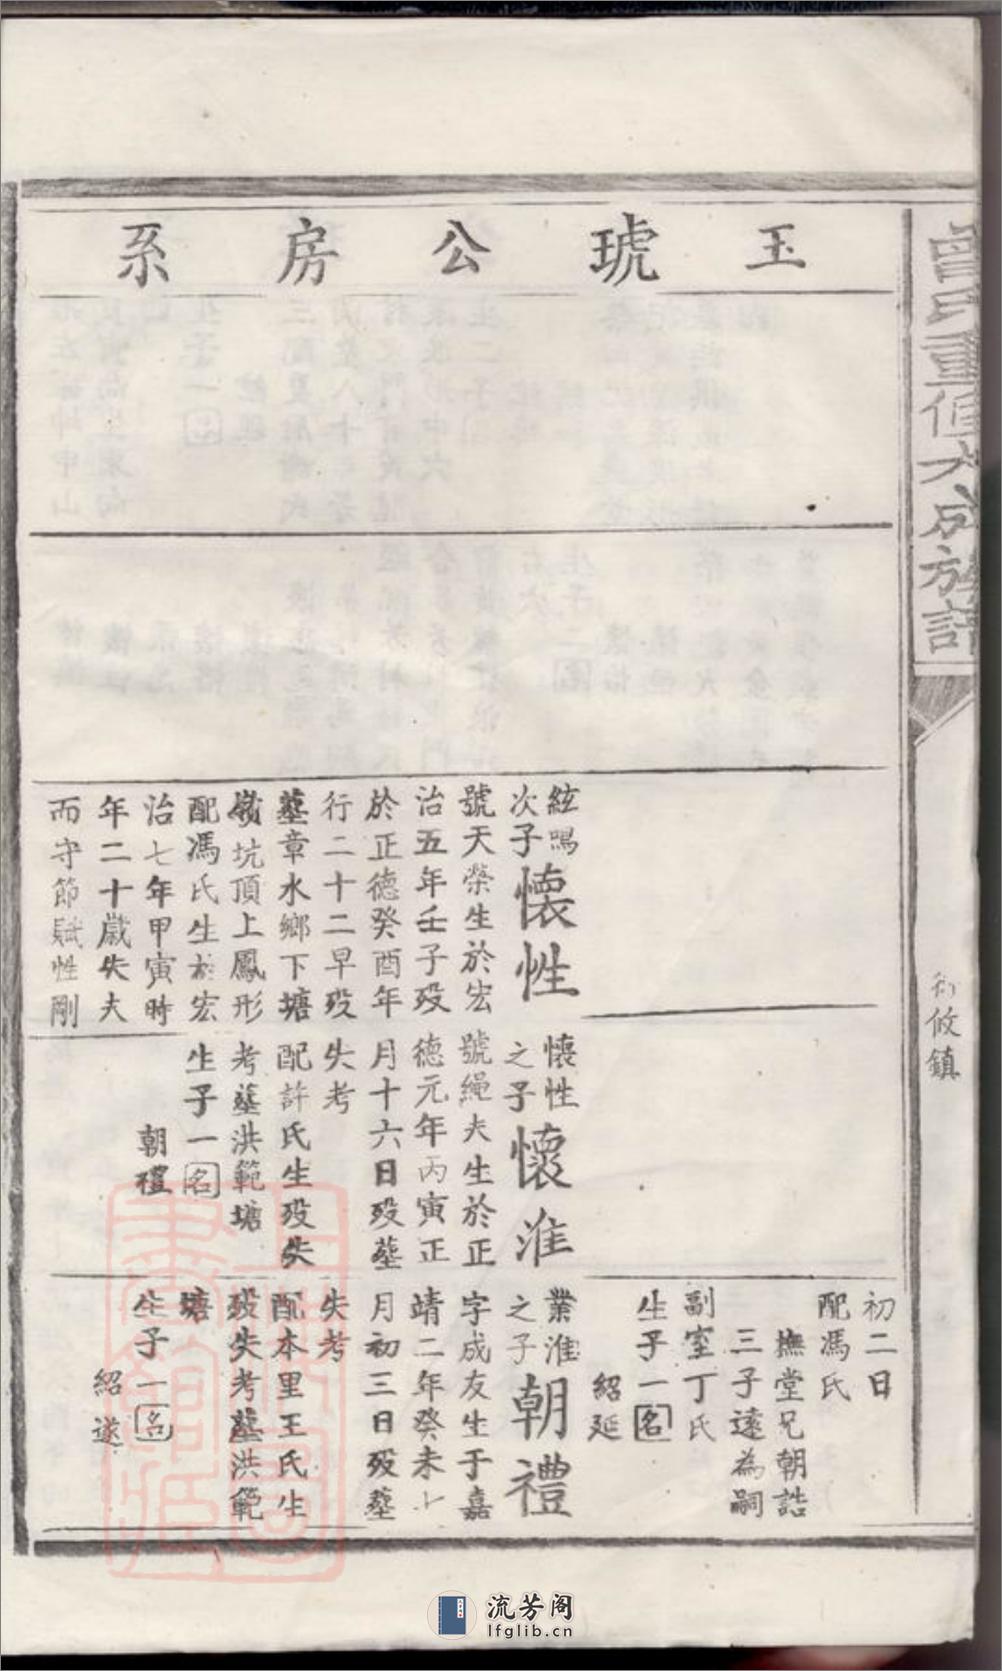 玉琥公房系
曾氏重修大成族譜
攸鎮
絃鳴
次子
懷性
號天榮生於宏
治五年壬子歿
於正德癸酉年
行二十二早歿
墓章水鄉下塘
坑頂上鳳形
配馮氏生於宏
治七年甲寅時
年二十歲失夫
而守節賦性剛
懷性
之子
懷淮
號繩夫生於正
德元年丙寅正
月十六日歿墓
失考
配許氏生歿失
考墓洪範塘
生子一名
朝禮
初二日
配馮氏
撫堂兄朝誥
三子遠為嗣
副室丁氏
生子一名
紹延
業淮
之子
朝禮
字成友生于嘉
靖二年癸未七
月初三日歿墓
失考
配本里王氏生
歿失考墓洪範
塘
生子一名
紹遂
流芳阁
lfglib.cn